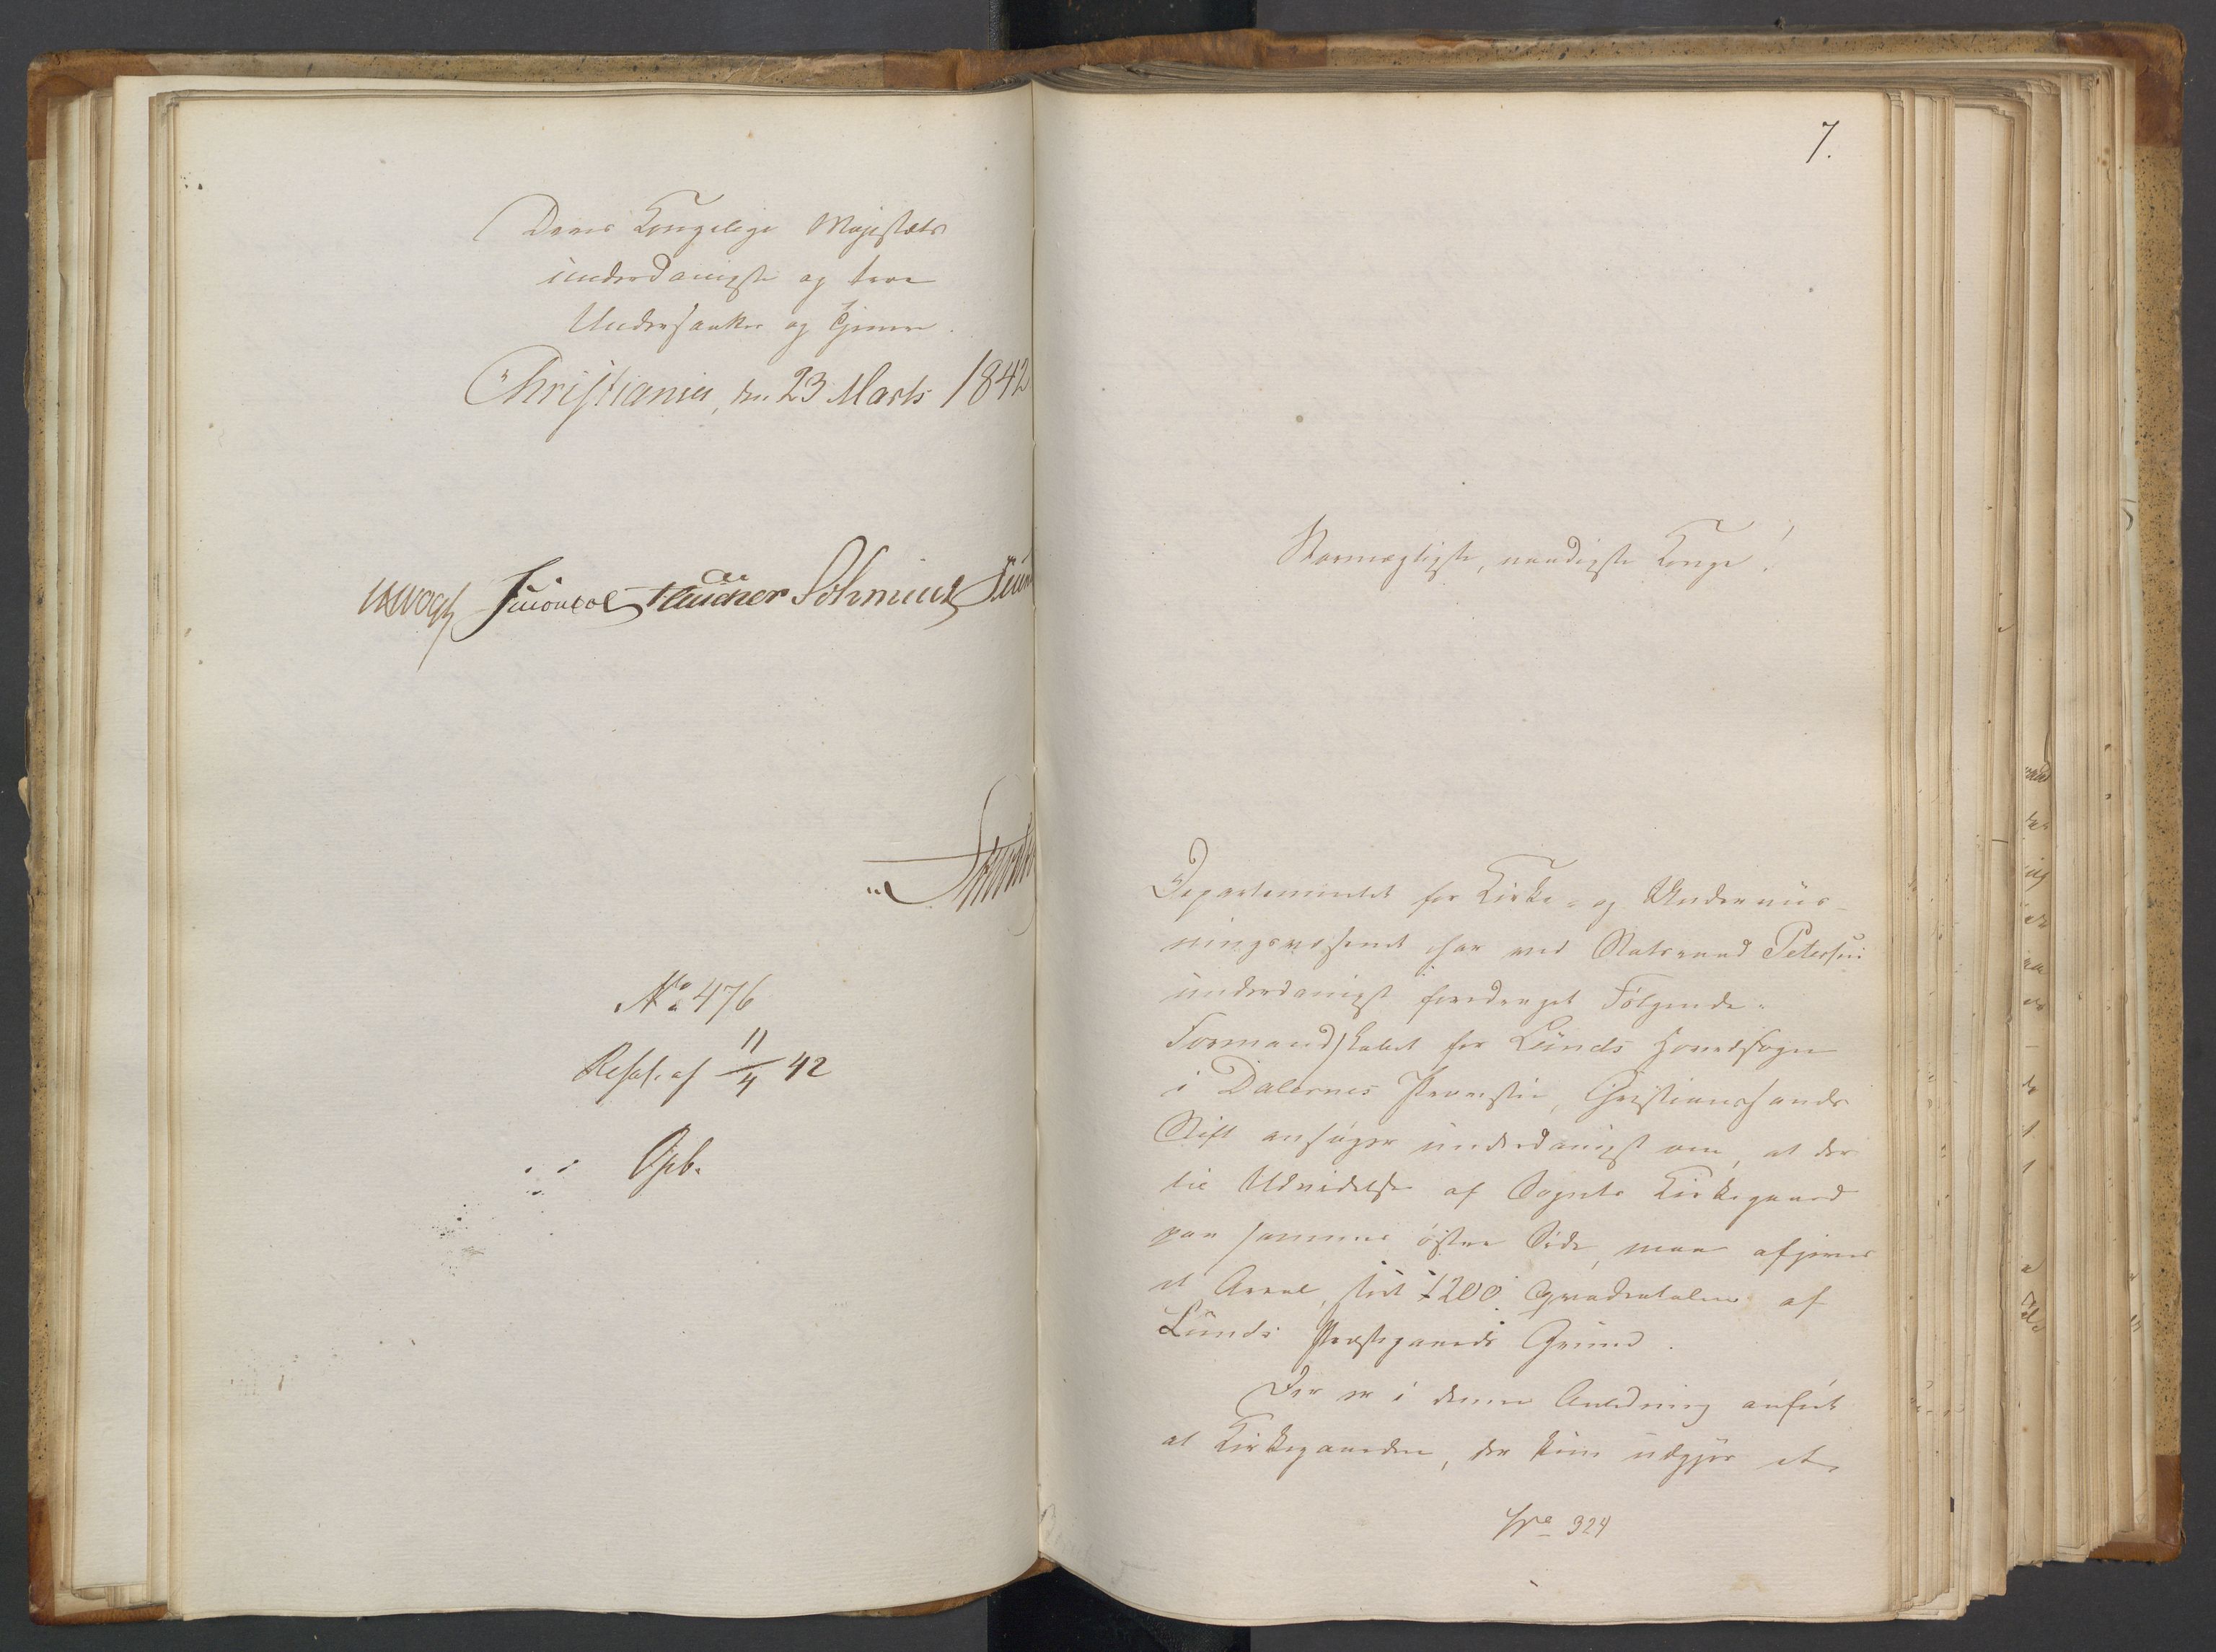 Deres Kongelige Majestæts
underdanigste og troe
Undersaatter og tjenere.
Christiania, den 23 Marts 1842
JHVogt Schmidt
No 476
Resol. af 11/4 42
Opb.
7.
Stormægtigste, naadigste Konge!
Departementet for Kirke- og Underviis-
ningsvæsenet har ved Statsraad Petersen
underdanigst foredraget Følgende:
Formandskabet for Lunds Hovedsogn
i Dalernes Provstie, Christianssands
Stift ansøger underdanigst om, at der
til Udvidelse af Sognets Kirkegaard
paa sammes østre Side, maa afgives
et Areal, stort 1200 Qvadratalen af
Lunds Præstegaards Grund.
Der er i denne Anledning anført
at Kirkegaarden, der kun udgjør et
No 324